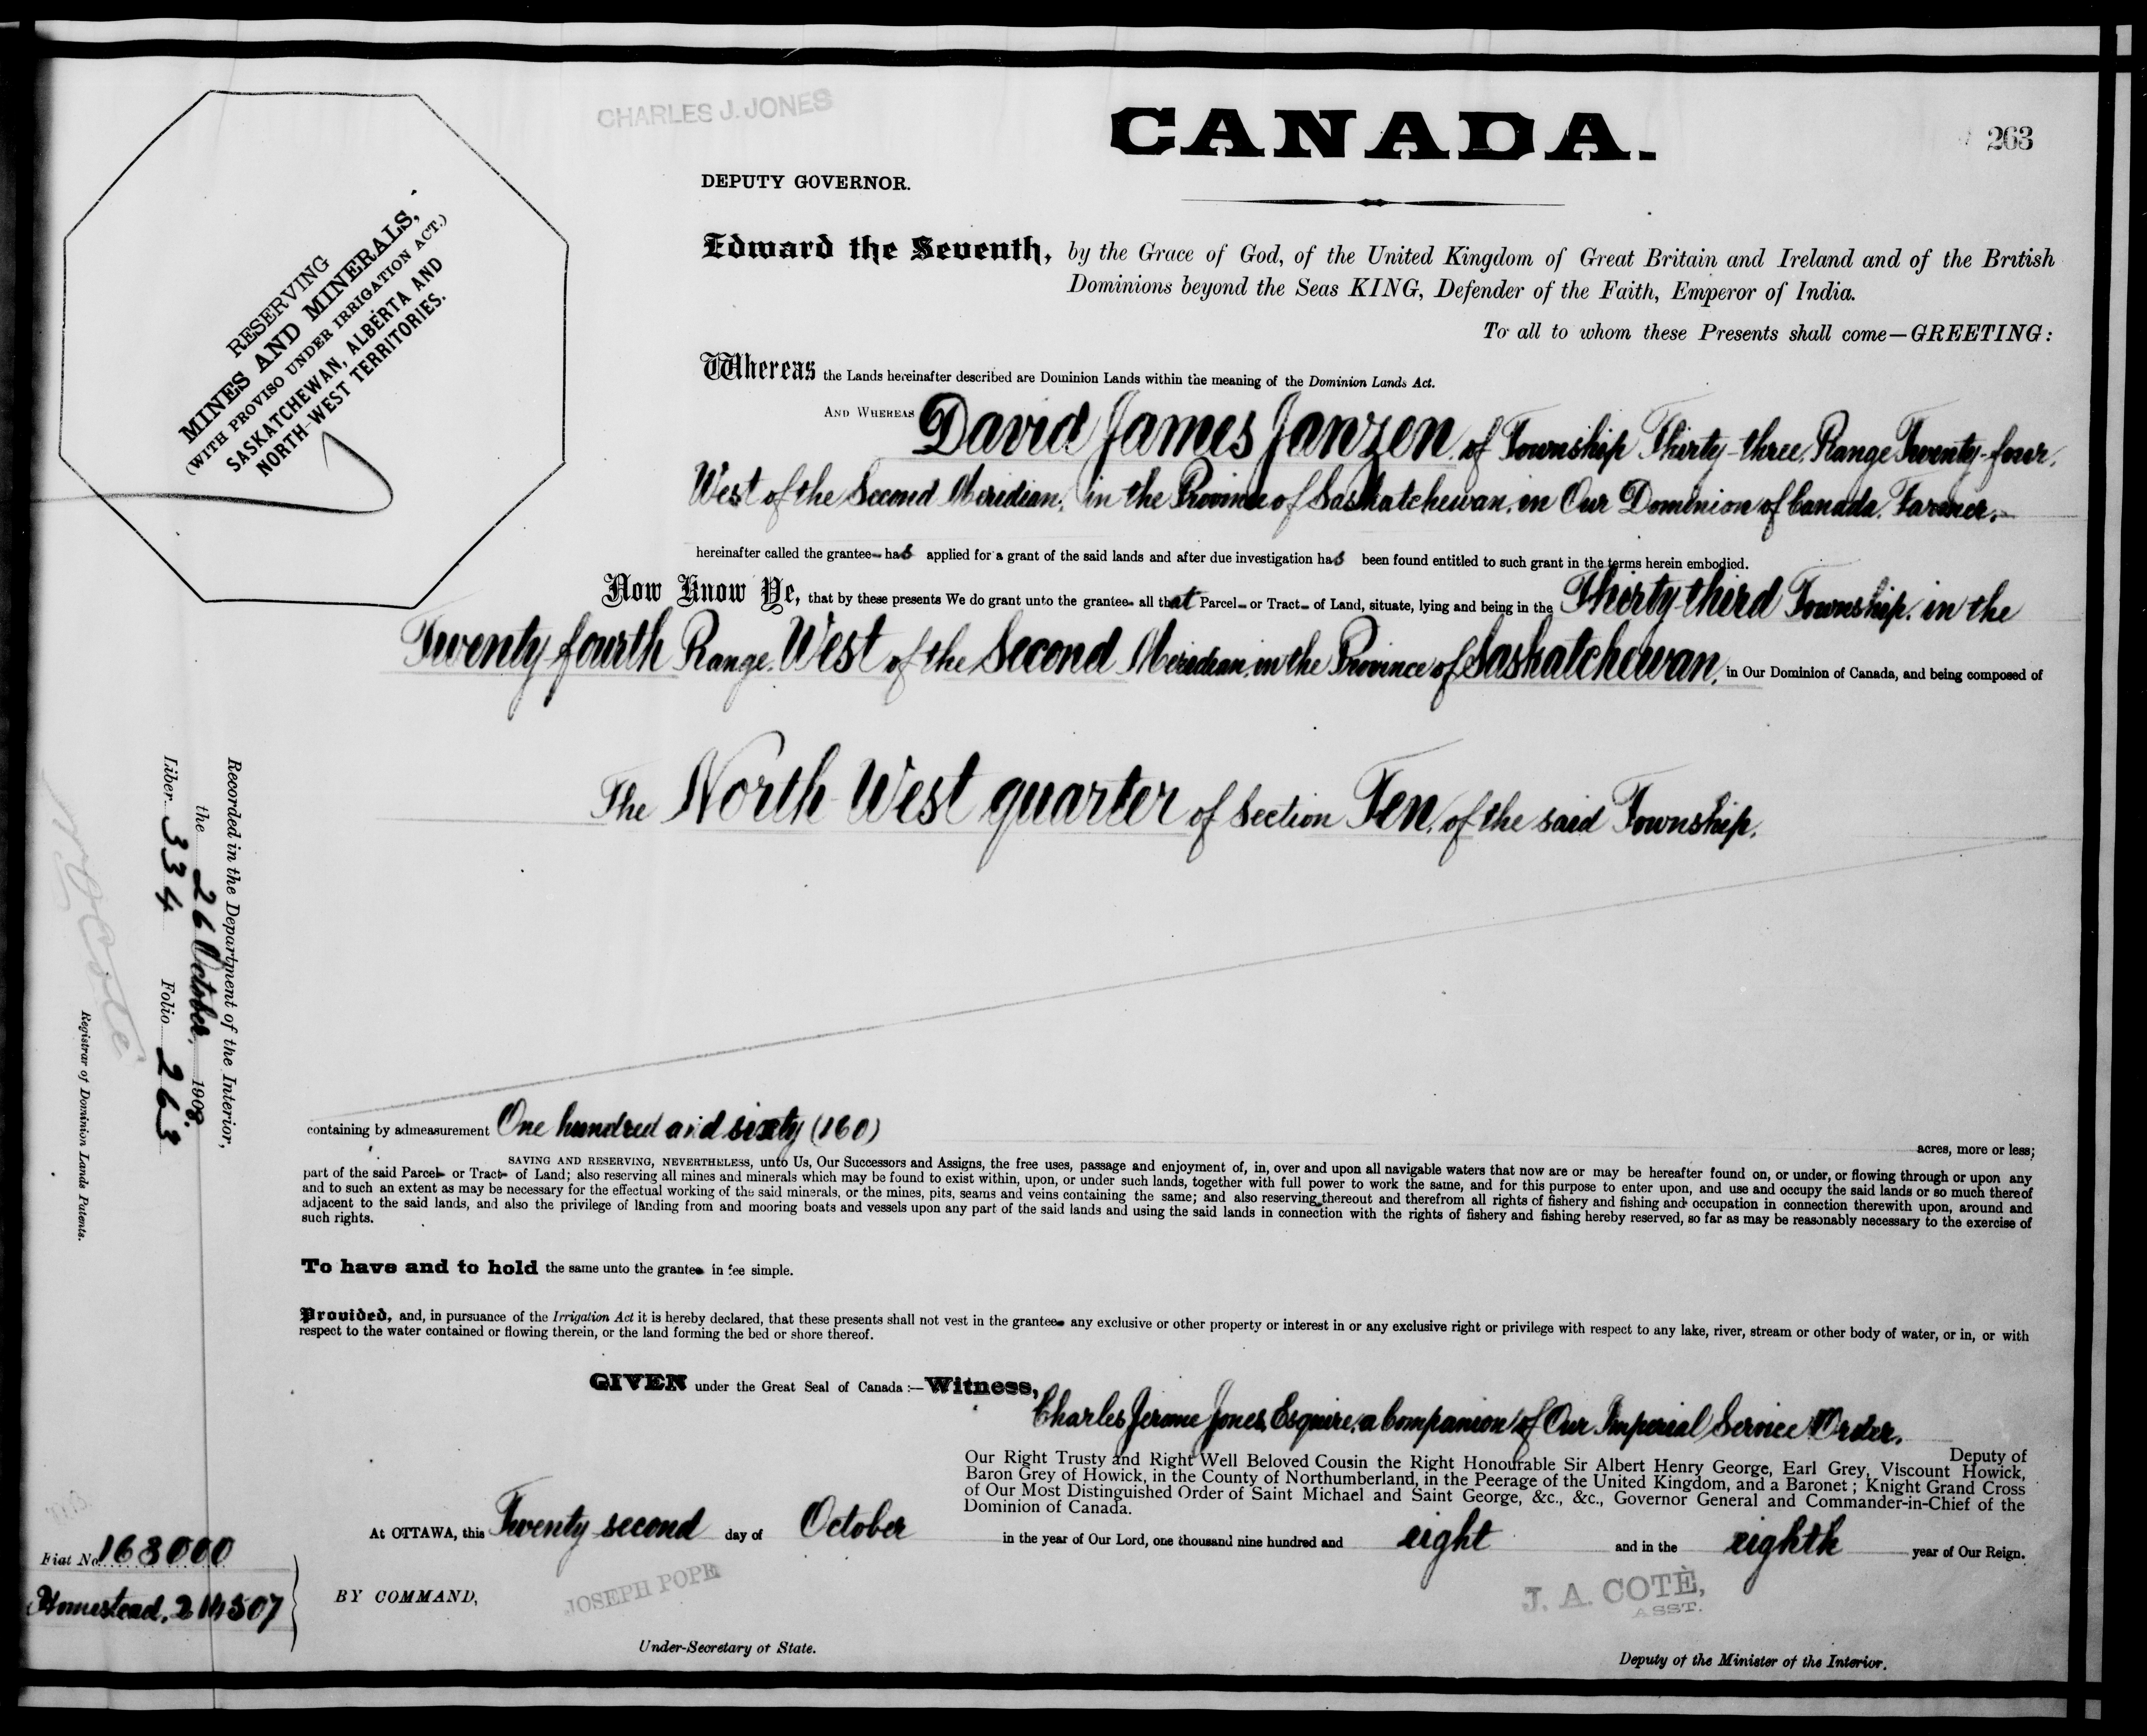 CHARLES J. JONES
CANADA.
263
DEPUTY GOVERNOR.
RESERVING
MINES AND MINERALS,
(WITH PROVISO UNDER IRRIGATION ACT.)
SASKATCHEWAN, ALBERTA AND
NORTH-WEST TERRITORIES.
Edward the Seventh, by the Grace of God, of the United Kingdom of Great Britain and Ireland and of the British
Dominions beyond the Seas KING, Defender of the Faith, Emperor of India.
To all to whom these Presents shall come—GREETING:
Whereas the Lands hereinafter described are Dominion Lands within the meaning of the Dominion Lands Act.
AND WHEREAS David James Janzen, of Township Thirty-three, Range Twenty-four,
West of the Second Meridian, in the Province of Saskatchewan, in Our Dominion of Canada, Farmer,
hereinafter called the grantee has applied for a grant of the said lands and after due investigation has been found entitled to such grant in the terms herein embodied.
Now Know Ye, that by these presents We do grant unto the grantee all that Parcel or Tract of Land, situate, lying and being in the Thirty-third Township, in the
Twenty fourth Range, West of the Second Meridian, in the Province of Saskatchewan, in Our Dominion of Canada, and being composed of
The North West quarter of Section Ten, of the said Township.
containing by admeasurement One hundred and sixty (160)
acres, more or less;
SAVING AND RESERVING, NEVERTHELESS, unto Us, Our Successors and Assigns, the free uses, passage and enjoyment of, in, over and upon all navigable waters that now are or may be hereafter found on, or under, or flowing through or upon any
part of the said Parcel or Tract of Land; also reserving all mines and minerals which may be found to exist within, upon, or under such lands, together with full power to work the same, and for this purpose to enter upon, and use and occupy the said lands or so much thereof
and to such an extent as may be necessary for the effectual working of the said minerals, or the mines, pits, seams and veins containing the same; and also reserving thereout and therefrom all rights of fishery and fishing and occupation in connection therewith upon, around and
adjacent to the said lands, and also the privilege of landing from and mooring boats and vessels upon any part of the said lands and using the said lands in connection with the rights of fishery and fishing hereby reserved, so far as may be reasonably necessary to the exercise of
such rights.
To have and to hold the same unto the grantee in fee simple.
Provided, and, in pursuance of the Irrigation Act it is hereby declared, that these presents shall not vest in the grantee any exclusive or other property or interest in or any exclusive right or privilege with respect to any lake, river, stream or other body of water, or in, or with
respect to the water contained or flowing therein, or the land forming the bed or shore thereof.
GIVEN under the Great Seal of Canada :—Witness,
Charles Jerome Jones, Esquire, a Companion of Our Imperial Service Order,
Deputy of
Our Right Trusty and Right Well Beloved Cousin the Right Honourable Sir Albert Henry George, Earl Grey, Viscount Howick,
Baron Grey of Howick, in the County of Northumberland, in the Peerage of the United Kingdom, and a Baronet ; Knight Grand Cross
of Our Most Distinguished Order of Saint Michael and Saint George, &c., &c., Governor General and Commander-in-Chief of the
Dominion of Canada.
At OTTAWA, this Twenty second day of October in the year of Our Lord, one thousand nine hundred and eight and in the eighth year of Our Reign.
BY COMMAND,
JOSEPH POPE
Under-Secretary of State.
J. A. COTÈ,
ASST.
Deputy of the Minister of the Interior.
Recorded in the Department of the Interior,
the 26 October, 1908.
Liber 334 Folio 263
Registrar of Dominion Lands Patents.
Fiat No. 168000
Homestead,